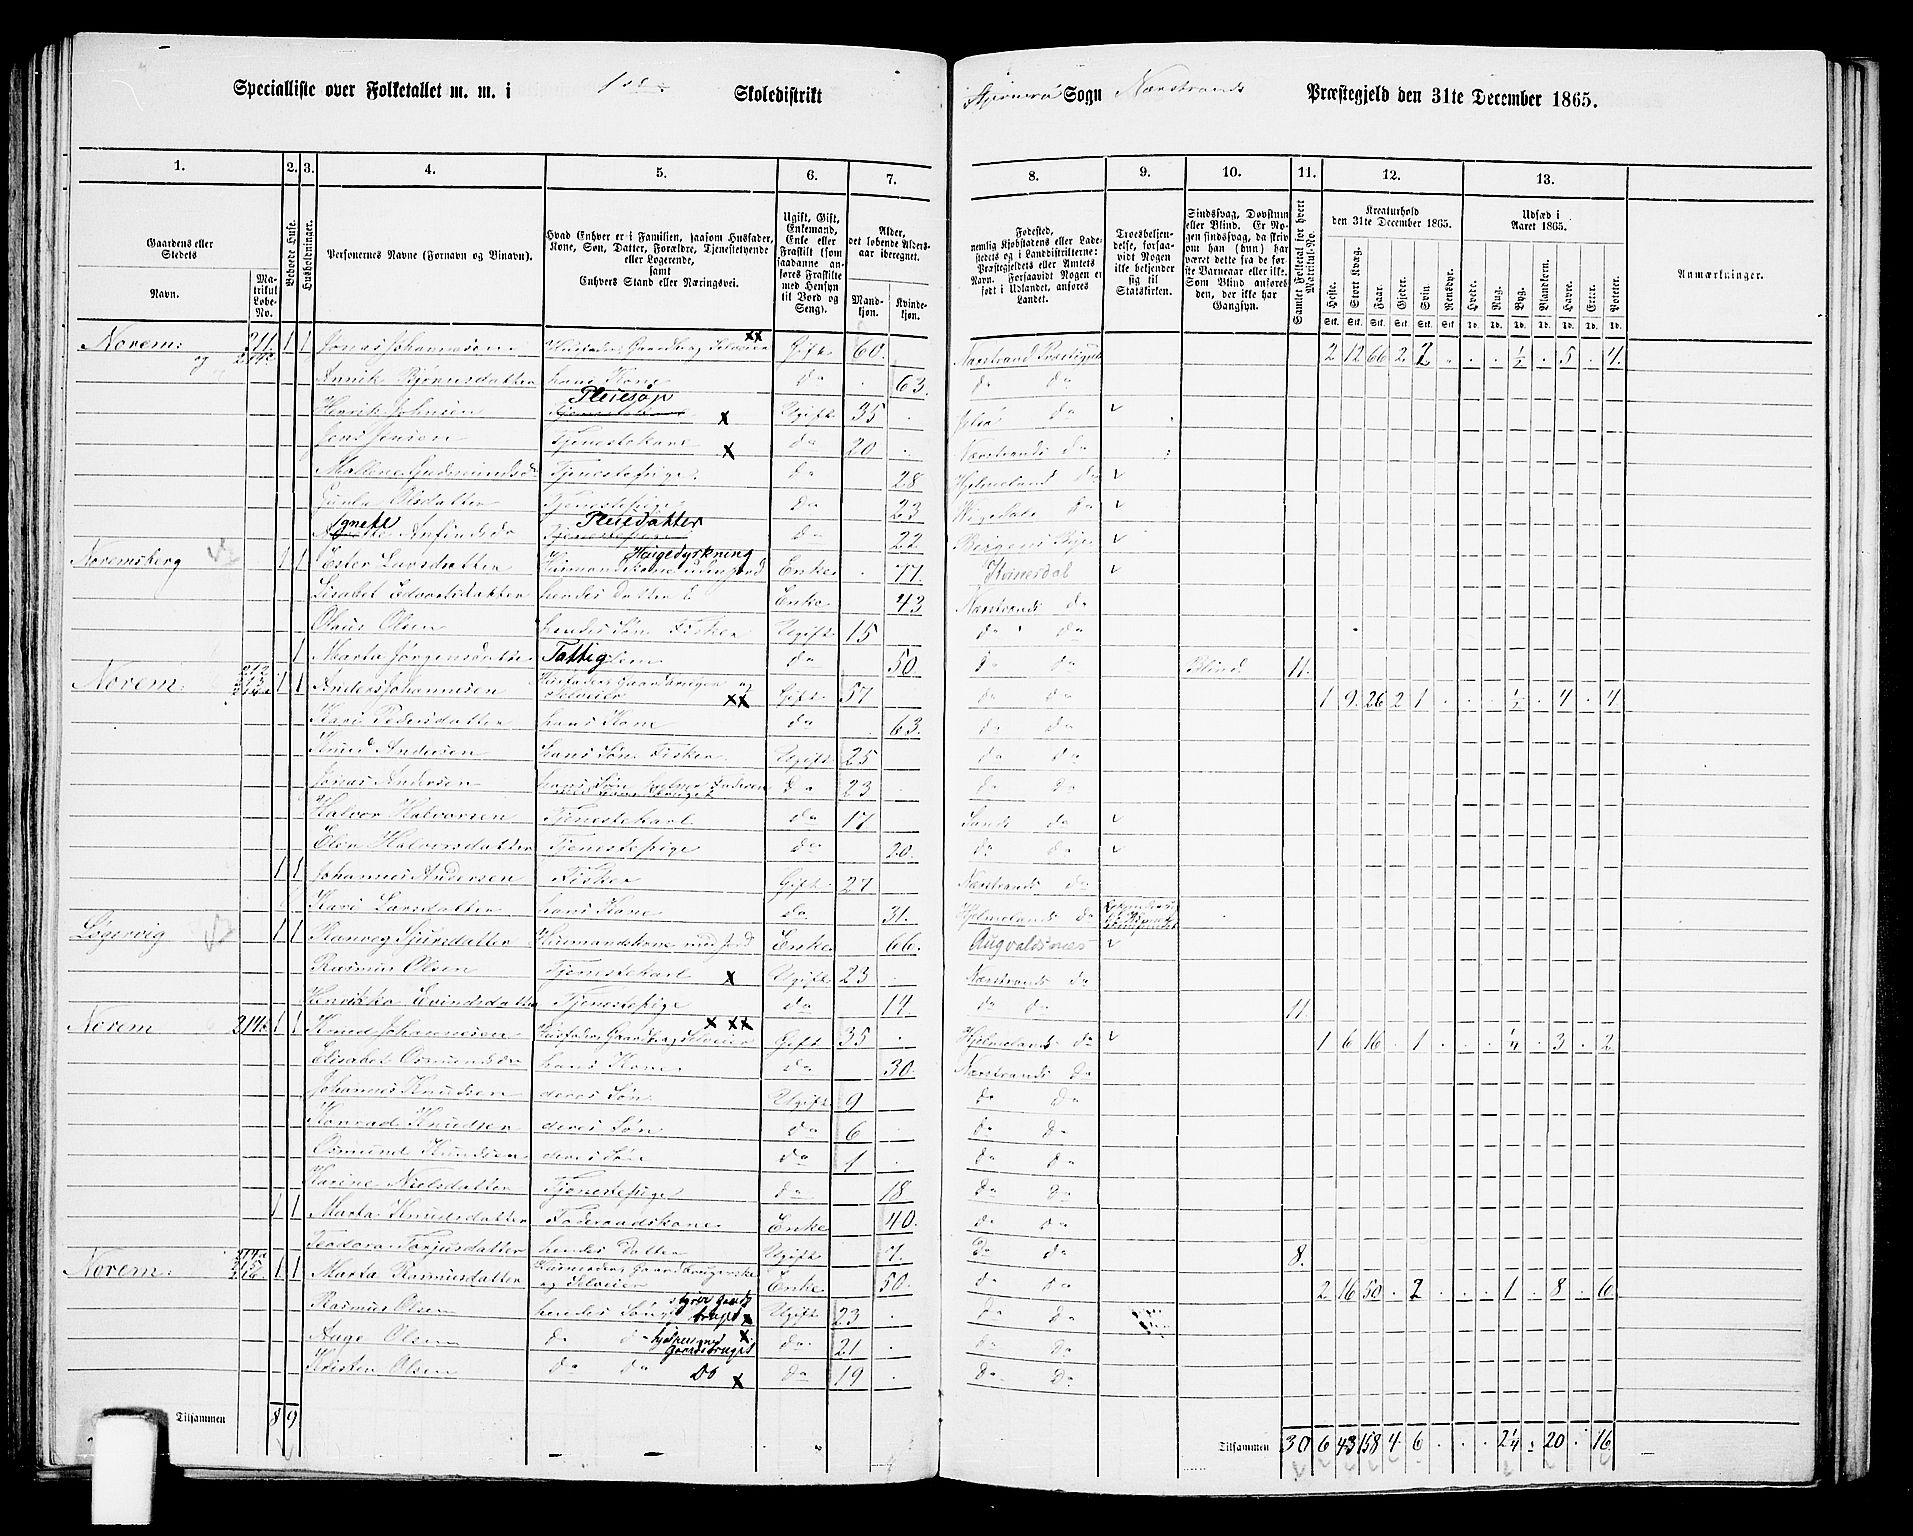 Specialliste over Folketallet m. m. i 1ste Skoledistrikt
Stjernerö Sogn Nærstrands Præstegjeld den 31te December 1865.
1. 2. 3. 4. 5. 6. 7. 8. 9. 10. 11. 12. 13.
Gaardens eller Stedets Navn. Matrikul Løbe-No. Beboede Huse. Husholdninger. Personernes Navne (Fornavn og Tilnavn).
Hvad Enhver er i Familien, saasom Husfader, Kone, Søn, Datter, Forældre, Tjenestetyende eller Logerende, samt Enhvers Stand eller Næringsvei.
Ugift, Gift, Enkemand, Enke eller Fraskilt (som saadanne anføres Fraskilte med Hensyn til Bord og Seng).
Alder, det løbende Aldersaar iberegnet. Mandkjøn. Kvindekjøn.
Fødested, nemlig Kjøbstadens eller Ladestedets og i Landdistrikterne: Præstegjeldets eller Amtets Navn. Forsaavidt Nogen er født i Udlandet, anføres Landet.
Troesbekjendelse, forsaavidt Nogen ikke bekjender sig til Statskirken.
Samlet Folketal for hvert Matrikul-No.
Kreaturhold den 31te December 1865. Heste. Stort Kvæg. Faar. Gjeder. Svin. Rensdyr.
Udsæd i Aaret 1865. Hvede. Rug. Byg. Blandkorn. Havre. Erter. Poteter.
Anmærkninger.
Norem: 211 1 1 Jonas Johannesen Gift 60. 2 12 66 2 2 ½ 5 4.
og
Annik Bjørnsdatter hans Kone do 63. do do
Henrik Johnsen Pleiesøn x Ugift 35 do
Jens Jensen x do 20 Nærstrands do
Mallene Gudmundsd. Tjenestepige. do 28 Hjelmeland do
Olsdatter Tjenestepige do 23
Agnete Anfindsd. Pleiedatter do 22
Noremsberg 1 1 Ester Larsdatter Husmandskone uden Jord Enke 77. Kvinesdal
Lisabet datter hendes Datter Enke 43 Nærstrands do
Olaus Olsen hendes Søn Fisker Ugift 15 do do
1 Marta Jørgensdatter Fattiglem do 50 do do Blind 11.
Norem: 212 213 1 1 Anders Johannesen Husfader, Gaardbruger og Selveier xx Gift 57 1 9. 26 2 1 ½ 4 4
Kari Pedersdatter hans Kone do 63. do do
Knud Andersen hans Søn Fisker Ugift 25 do do
Jonas Andersen do 23 do do
Halvor Halvorsen Tjenestekarl do 17 Sands do
Elen Halvorsdatter Tjenestepige do 20. do do
1 1 Johannes Andersen Fisker Gift 27 Nærstrands do
Kari Larsdatter hans Kone do 31. Hjelmelands do
Løgervig 1 1 Ranveg Sjursdatter Husmandskone med Jord Enke 66. Augvaldsnes
Rasmus Olsen Tjenestekarl x Ugift 23 Nærstrands do
Evindsdatter Tjenestepige do 14. do do 11.
Norem 1 1 Knud Johannesen Husfader, Gaardb. og Selveier x xx Gift 35 Hjelmelands do 1 6 16 1 ¼ 3 2
Elisabet Osmundsd. hans Kone do 30. Nærstrands do
Johannes Knudsen deres Søn Ugift 9 do do
Konrad Knudsen deres Søn do 6 do do
Osmund Knudsen deres Søn do 1 do do
Karine Nielsdatter Tjenestepige do 18 do do
1 1 Marta Knudsdatter Føderaadskone Enke 40. do do
Teodora Torjusdatter hendes Datter Ugift 7. do do 8.
Norem: 215 216 1 1 Marta Rasmusdatter og Selveier Enke 50. do do 2 16 50 2 1 8 6
Rasmus Olsen hendes Søn styrer Gaardsbruget x Ugift 23 do do
Aage Olsen do do x do 21 do do
Kristen Olsen do do Do x do 19 do do
Tilsammen 8 9
Tilsammen 30 6 43 158 4 6 2¼ 20 16